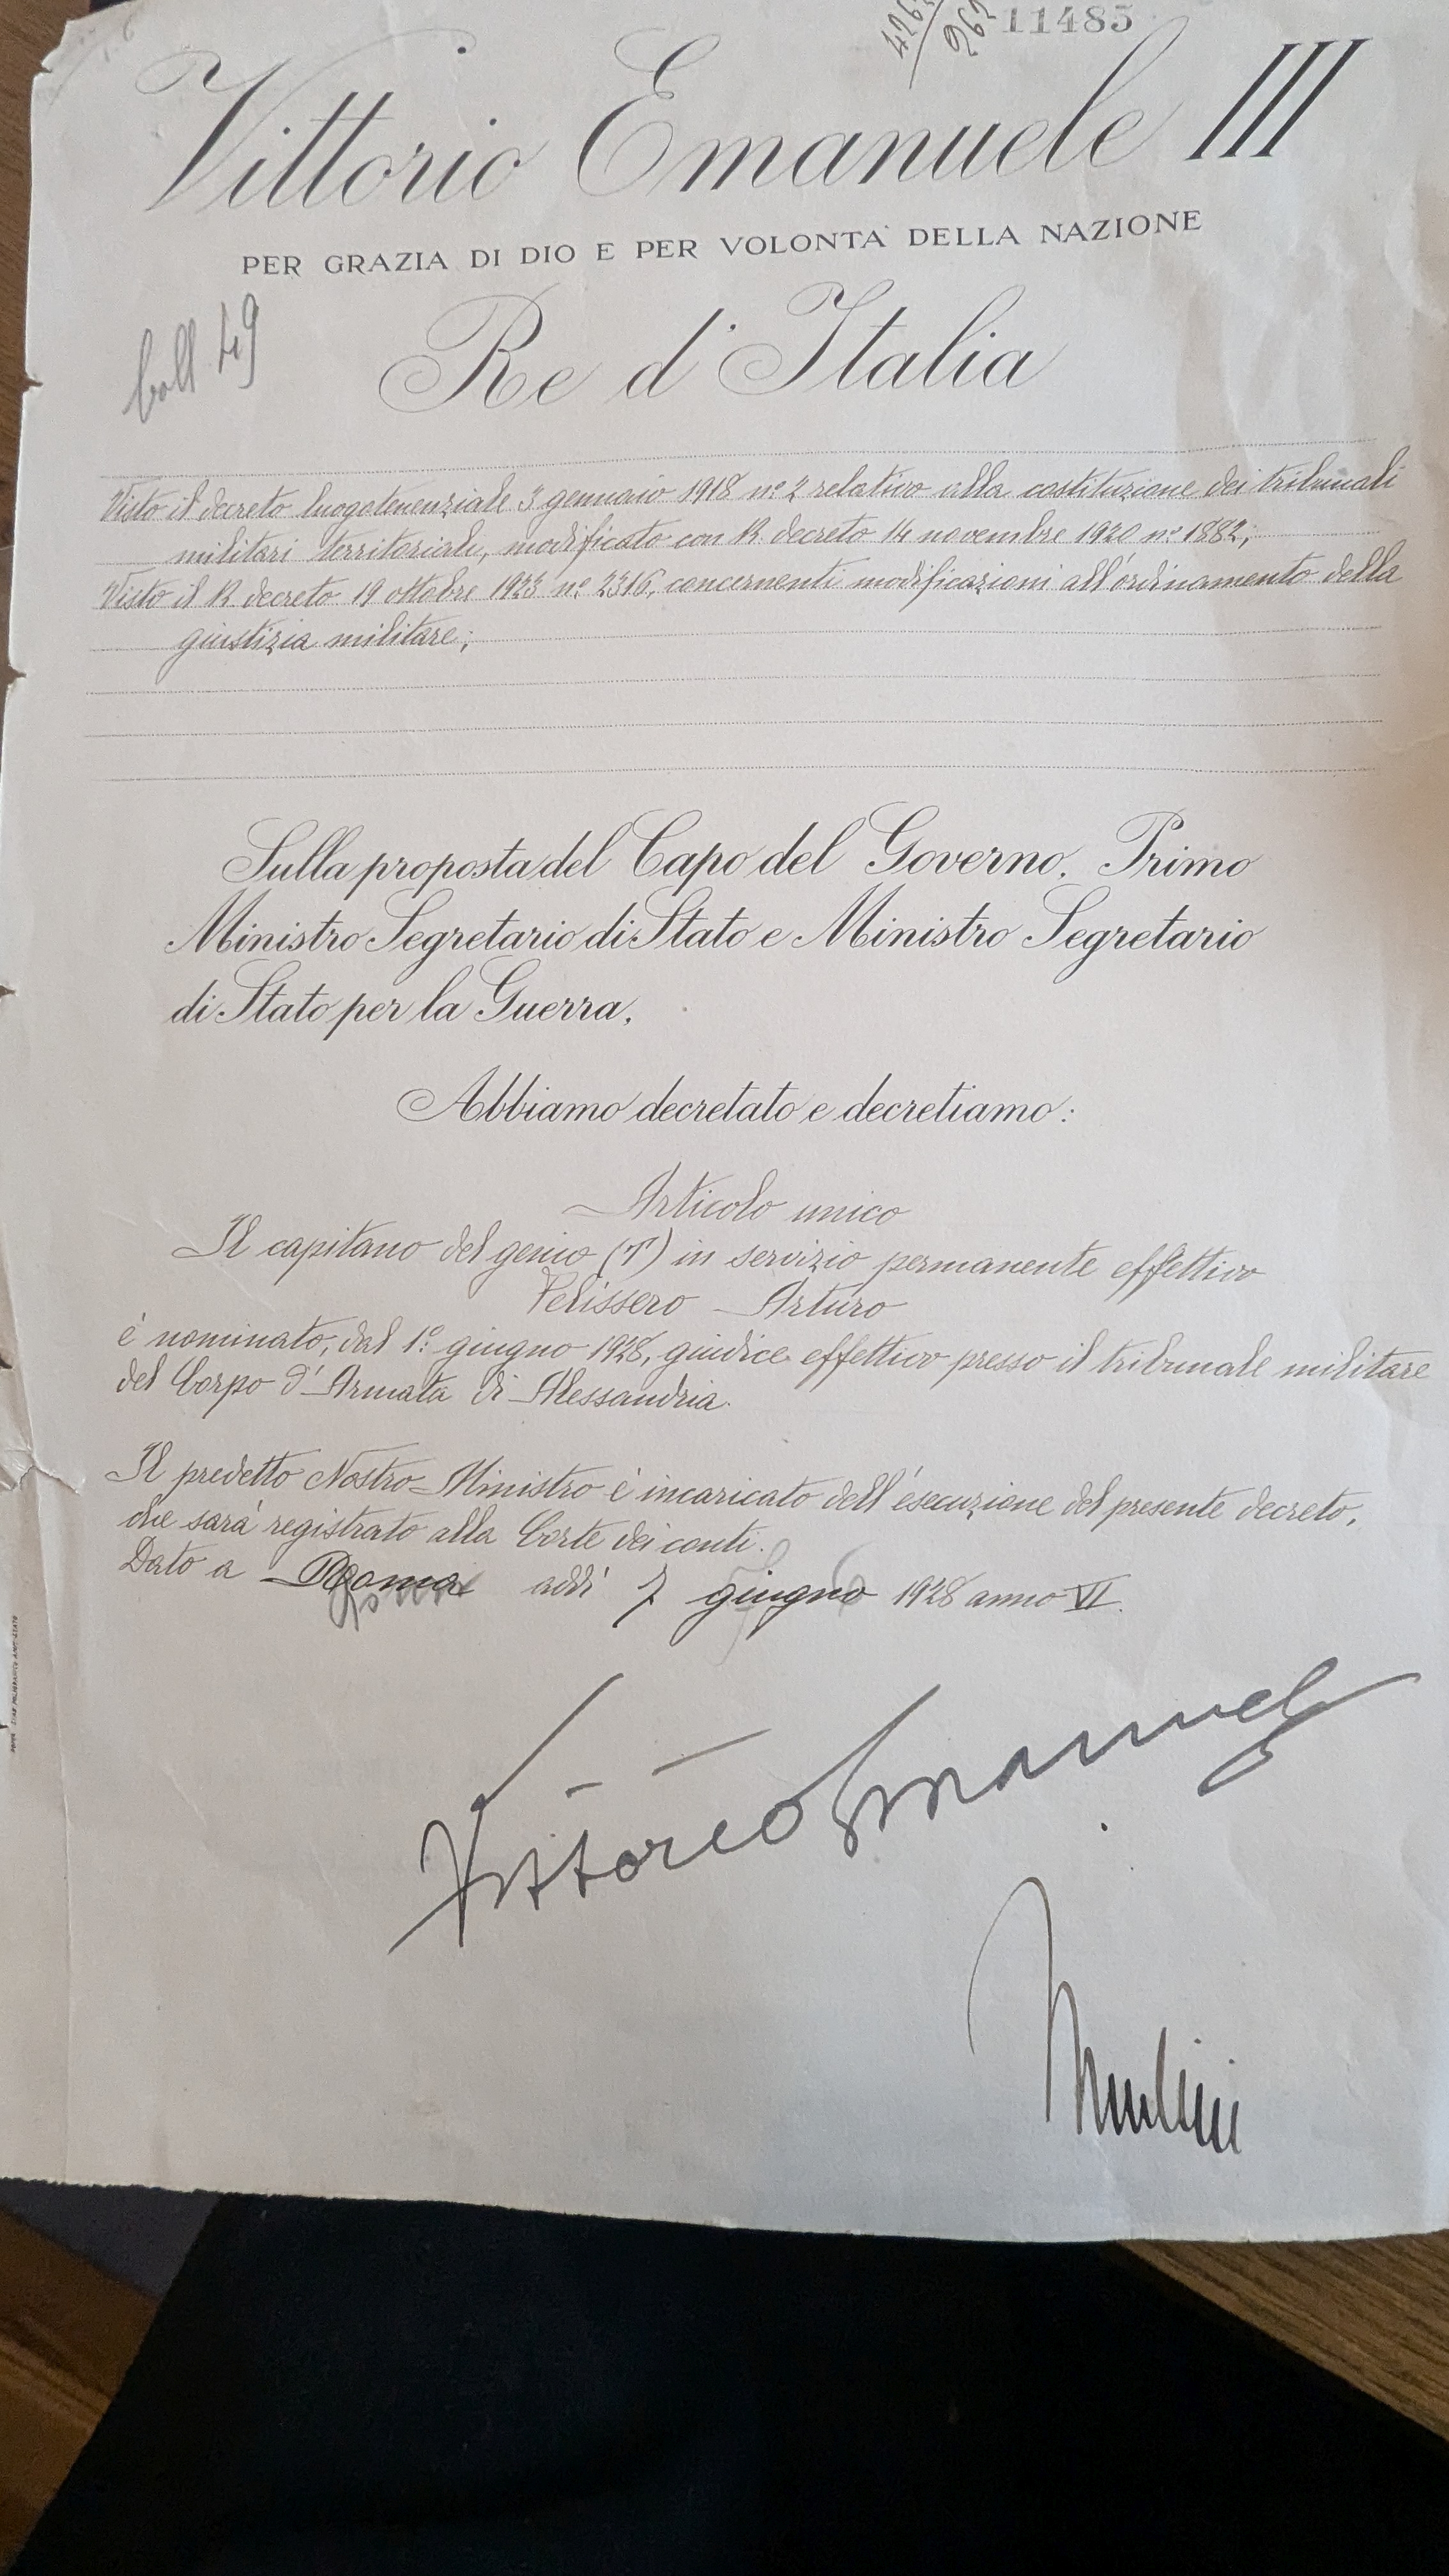 11485
Vittorio Emanuele III
PER GRAZIA DI DIO E PER VOLONTA' DELLA NAZIONE
boll 49
Re d'Italia
Visto il decreto luogotenenziale 3 gennaio 1918 n.º 2 relativo alla costituzione dei tribunali
militari territoriali, modificato con R. decreto 14 novembre 1920 n.º 1882;
Visto il R decreto 19 ottobre 1923 n.º 2316, concernenti modificazioni all'ordinamento della
giustizia militare;
Sulla proposta del Capo del Governo, Primo
Ministro Segretario di Stato e Ministro Segretario
di Stato per la Guerra,
Abbiamo decretato e decretiamo:
Articolo unico
Il capitano del genio (T) in servizio permanente effettivo
Pelissero Arturo
è nominato, dal 1º giugno 1928, giudice effettivo presso il tribunale militare
del Corpo d'Armata di Alessandria.
Il predetto Nostro Ministro è incaricato dell'esecuzione del presente decreto,
che sarà registrato alla Corte dei conti.
Dato a Roma addì 7 giugno 1928 anno VI.
Vittorio Emanuele
Mussolini